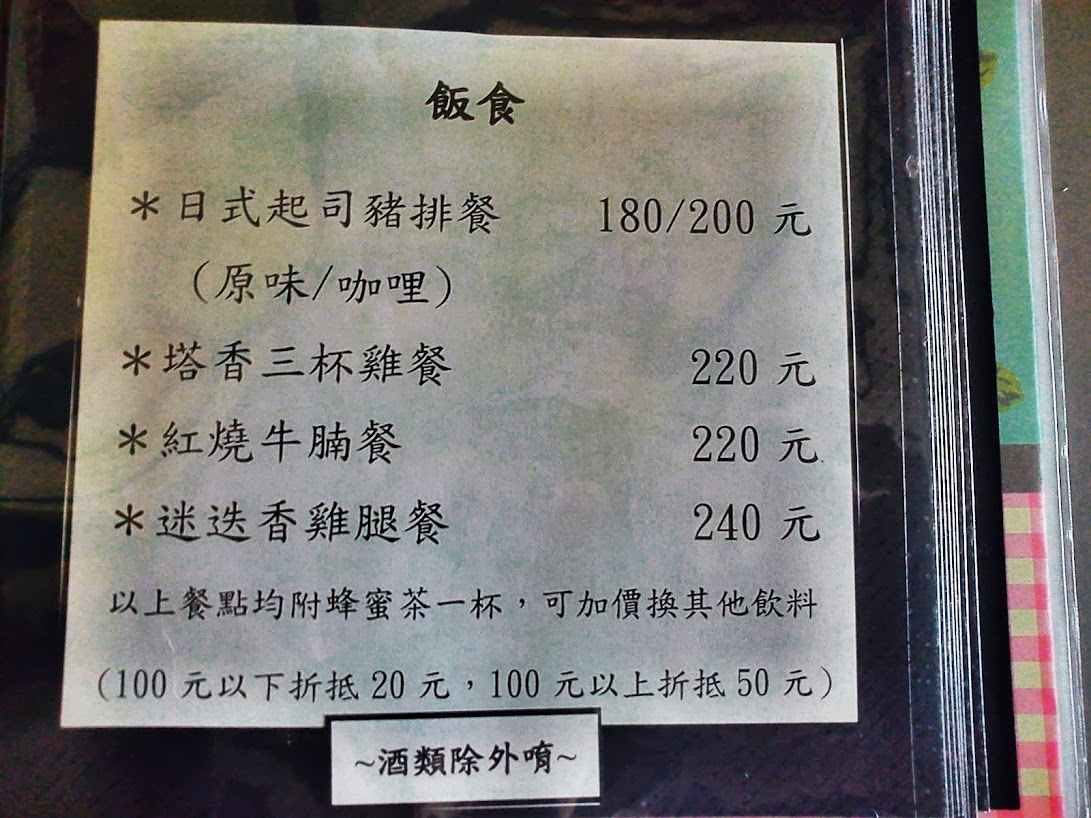 飯食
＊日式起司豬排餐 180/200 元
（原味/咖哩）
＊塔香三杯雞餐 220 元
＊紅燒牛腩餐 220 元
＊迷迭香雞腿餐 240 元
以上餐點均附蜂蜜茶一杯，可加價換其他飲料
（100 元以下折抵 20 元，100 元以上折抵 50 元）
~酒類除外唷~